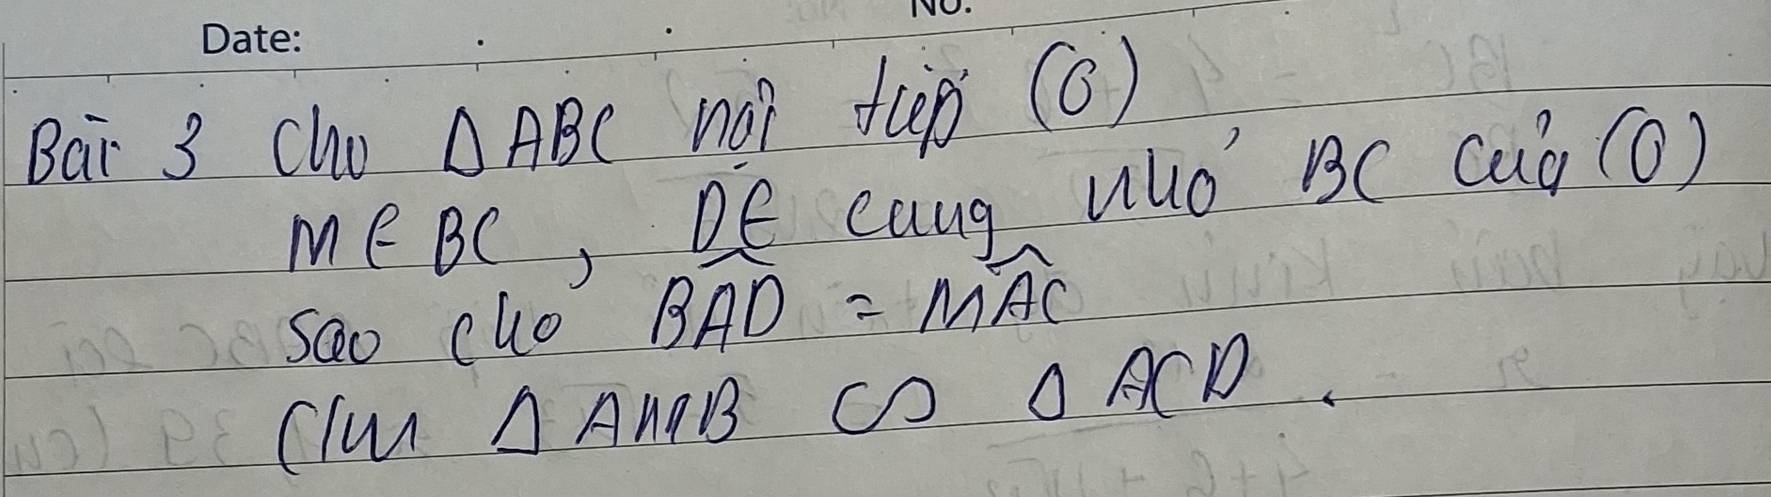 Date:
No.
Bài 3 Cho Δ ABC nội tiếp (O)
M ∈ BC, D ∈ cung nhỏ BC của (O)
sao cho \widehat{BAD} = \widehat{MAC}
C/m Δ AMB ∽ Δ ACD.